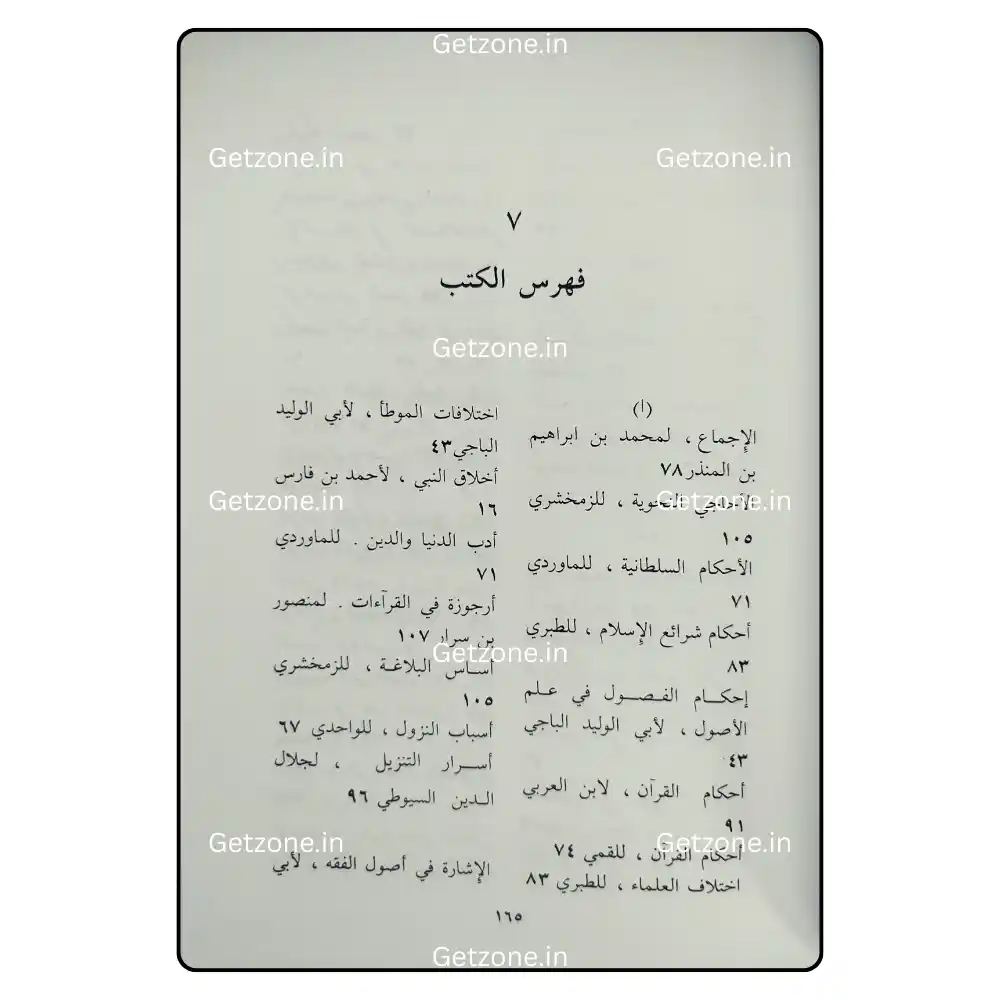 Getzone.in
Getzone.in Getzone.in
٧
فهرس الكتب
Getzone.in
(أ)
الإجماع ، لمحمد بن ابراهيم
بن المنذر ٧٨
الأحاجي النحوية ، للزمخشري
١٠٥
الأحكام السلطانية ، للماوردي
٧١
أحكام شرائع الإسلام ، للطبري
٨٣
إحكـــام الفـصـــول في عـلـم
الأصول ، لأبي الوليد الباجي
٤٣
أحكام القرآن ، لابن العربي
٩١
أحكام القرآن ، للقمي ٧٤
اختلاف العلماء ، للطبري ٨٣
اختلافات الموطأ ، لأبي الوليد
الباجي ٤٣
أخلاق النبي ، لأحمد بن فارس
١٦
أدب الدنيا والدين . للماوردي
٧١
أرجوزة في القرآءات . لمنصور
بن سرار ١٠٧
أسـاس البلاغـة ، للزمخشري
١٠٥
أسباب النزول ، للواحدي ٦٧
أســرار التنزيل ، لجلال
الـدين السيوطي ٩٦
الإشارة في أصول الفقه ، لأبي
Getzone.in Getzone.in
Getzone.in
Getzone.in Getzone.in
١٦٥
Getzone.in